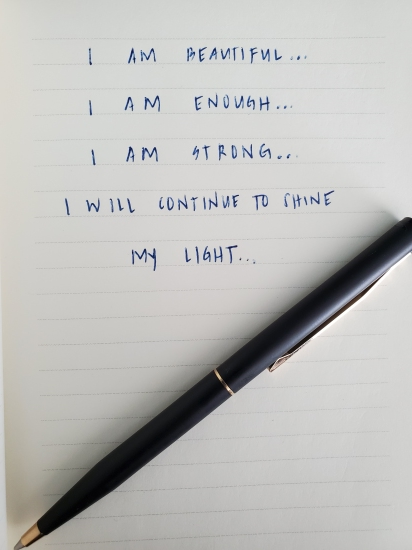 I AM BEAUTIFUL...
I AM ENOUGH...
I AM STRONG...
I WILL CONTINUE TO SHINE
MY LIGHT...